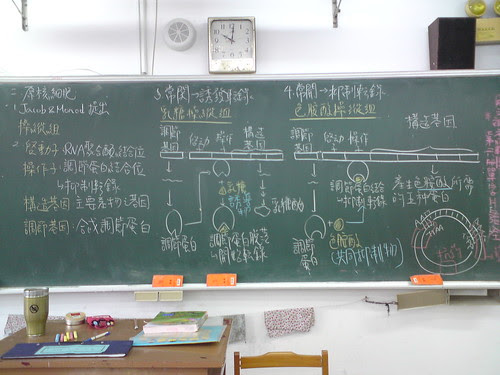 二 原核細胞
1. Jacob & Monod 提出
操縱組
2. 啟動子:RNA聚合酶結合位
操作子:調節蛋白結合位
→抑制轉錄
構造基因:主要表現之基因
調節基因:合成調節蛋白
3. 常關→誘發轉錄
乳糖操縱組
調節基因
啟動
操作
構造基因
調節蛋白
調節蛋白
開始轉錄
4. 常開→抑制轉錄
色胺酸操縱組
調節基因
啟動
操作
構造基因
調節蛋白結合
抑制轉錄
產生色胺酸所需
的五種蛋白
調節蛋白
色胺酸
(共同抑制物)